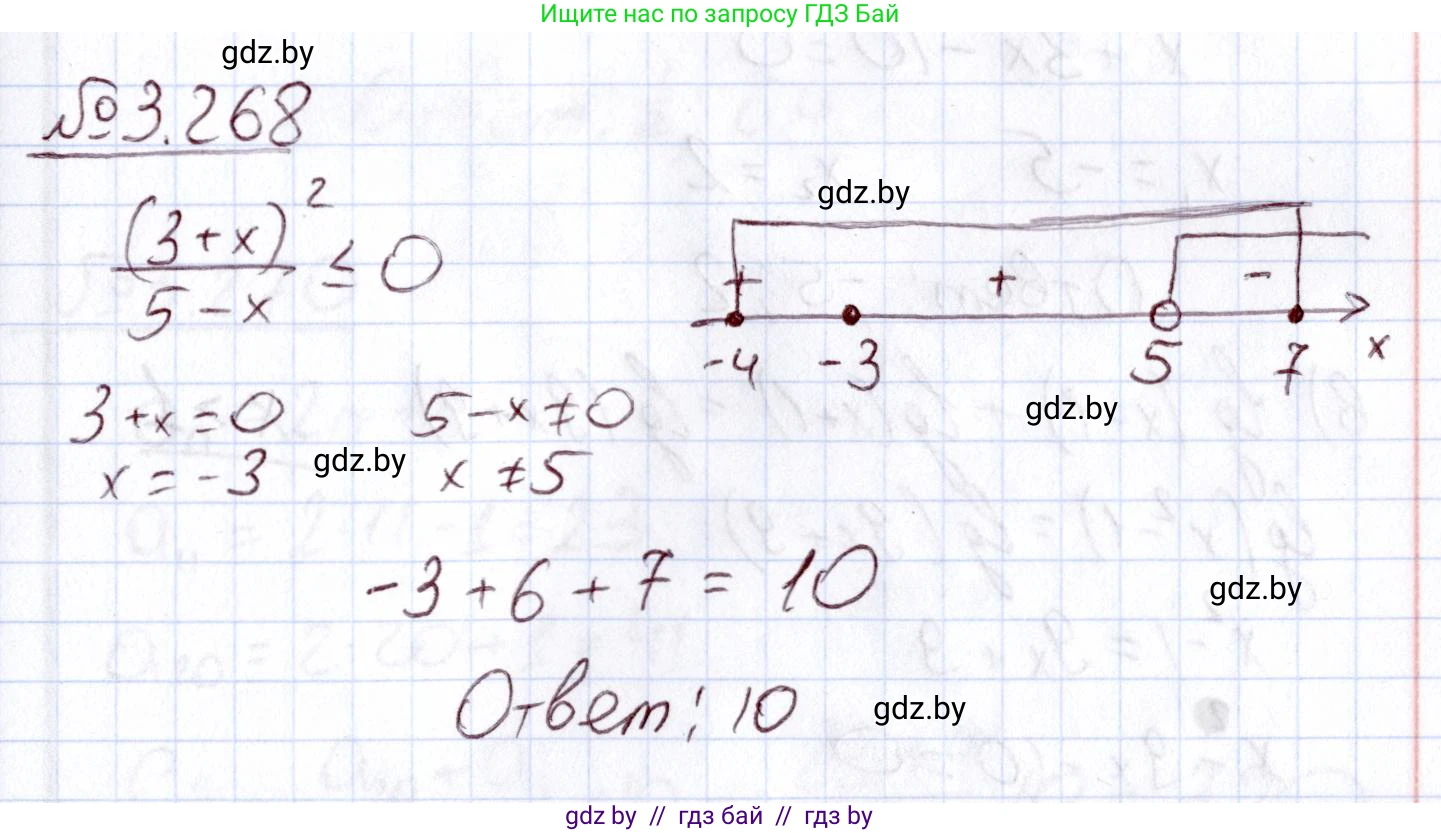 Ищите нас по запросу ГДЗ Бай
gdz.by
№3.268
(3+x)²/(5-x) ≤ 0
gdz.by
+ + -
-4 -3 5 7 x
gdz.by
3+x=0 5-x≠0
x=-3 gdz.by x≠5
-3+6+7=10
gdz.by
Ответ: 10 gdz.by
gdz.by // гдз бай // гдз by